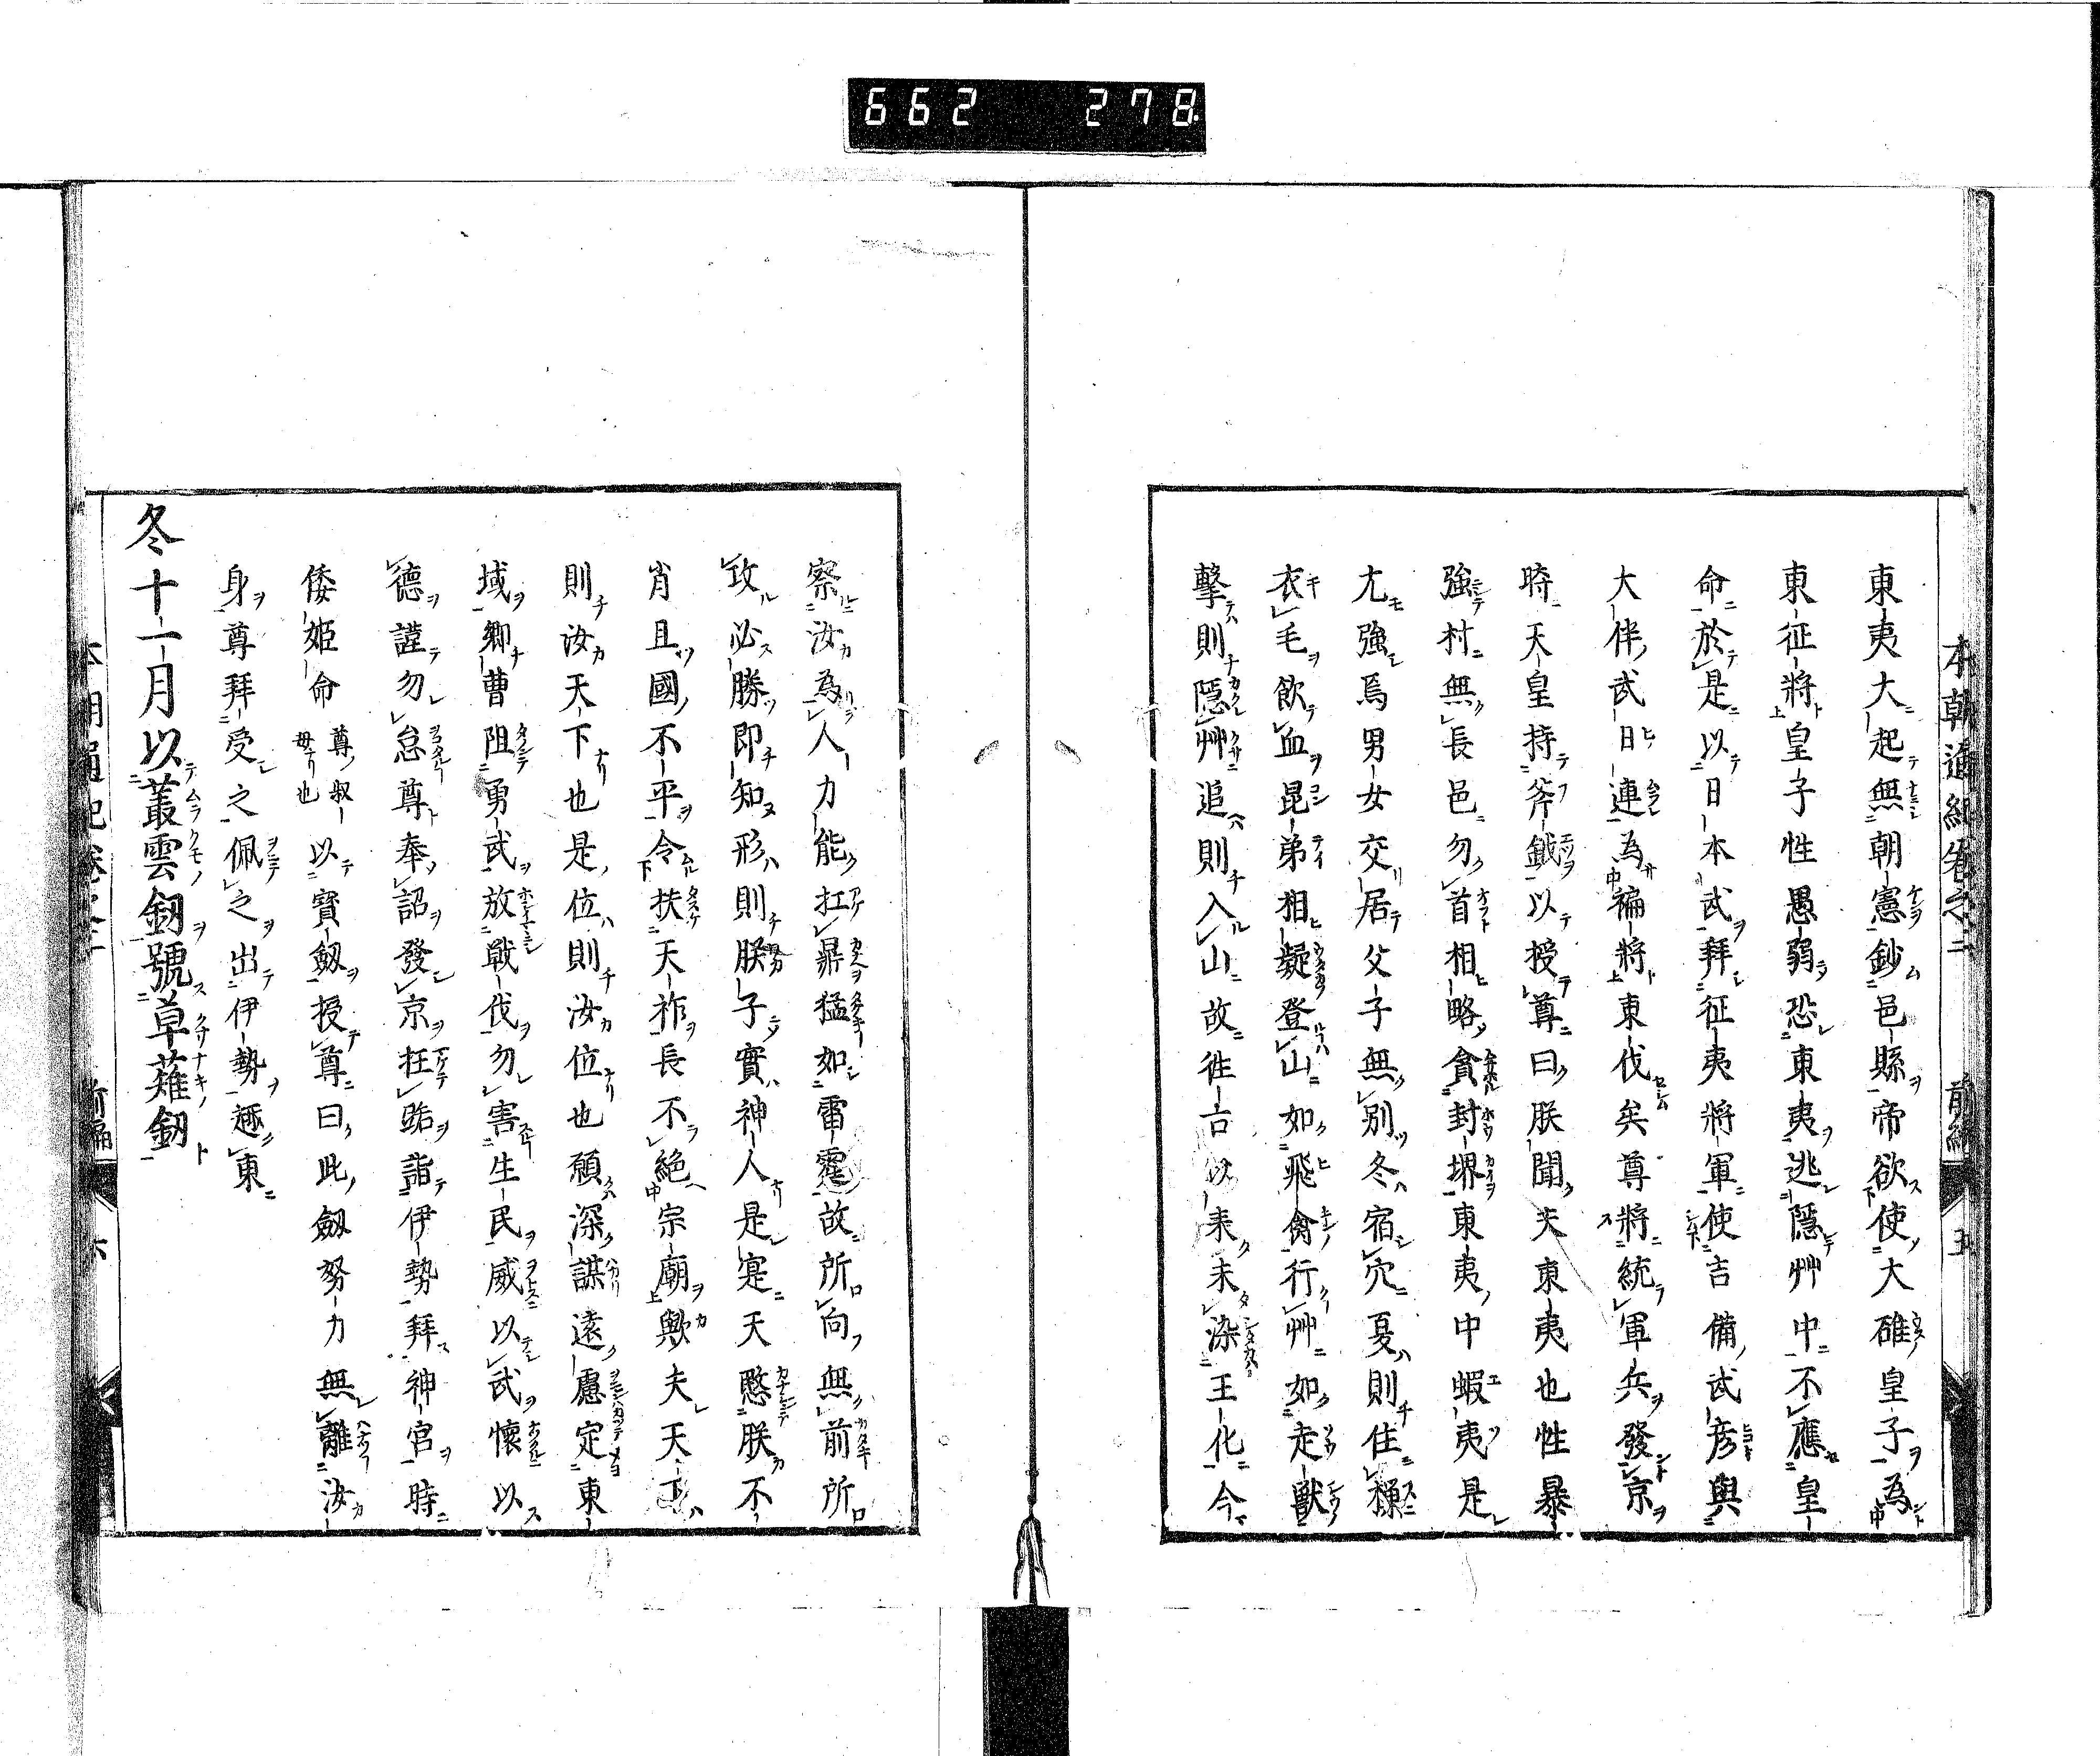 662 278
本朝通紀卷之二 前編 五
東夷大起無朝憲鈔邑縣帝欲使大碓皇子為
東征將皇子性愚弱恐東夷逃隱艸中不應皇
命於是以日本武拜征夷將軍使吉備武彦與
大伴武日連為褊將東伐矣尊將統軍兵發京
時天皇持斧鉞以授尊曰朕聞夫東夷也性暴
強村無長邑勿首相略貪封堺東夷中蝦夷是
尤強焉男女交居父子無別冬宿穴夏則住樔
衣毛飲血昆弟相凝登山如飛禽行艸如走獸
擊則隱艸追則入山故徃古以来未染王化今
察汝為人力能扛鼎猛如雷霆故所向無前所
攻必勝即知形則朕子實神人是寔天愍朕不
肖且國不平令扶天祚長不絕宗廟歟夫天下
則汝天下也是位則汝位也願深謀遠慮定東
域卿曹阻勇武放戰伐勿害生民威以武懷以
德謹勿怠尊奉詔發京枉路詣伊勢拜神宮時
倭姬命尊叔母也以寳劔授尊曰此劔努力無離汝
身尊拜受之佩之出伊勢趣東
冬十一月以叢雲釼號草薙釼
本朝通紀卷之二 前編 六